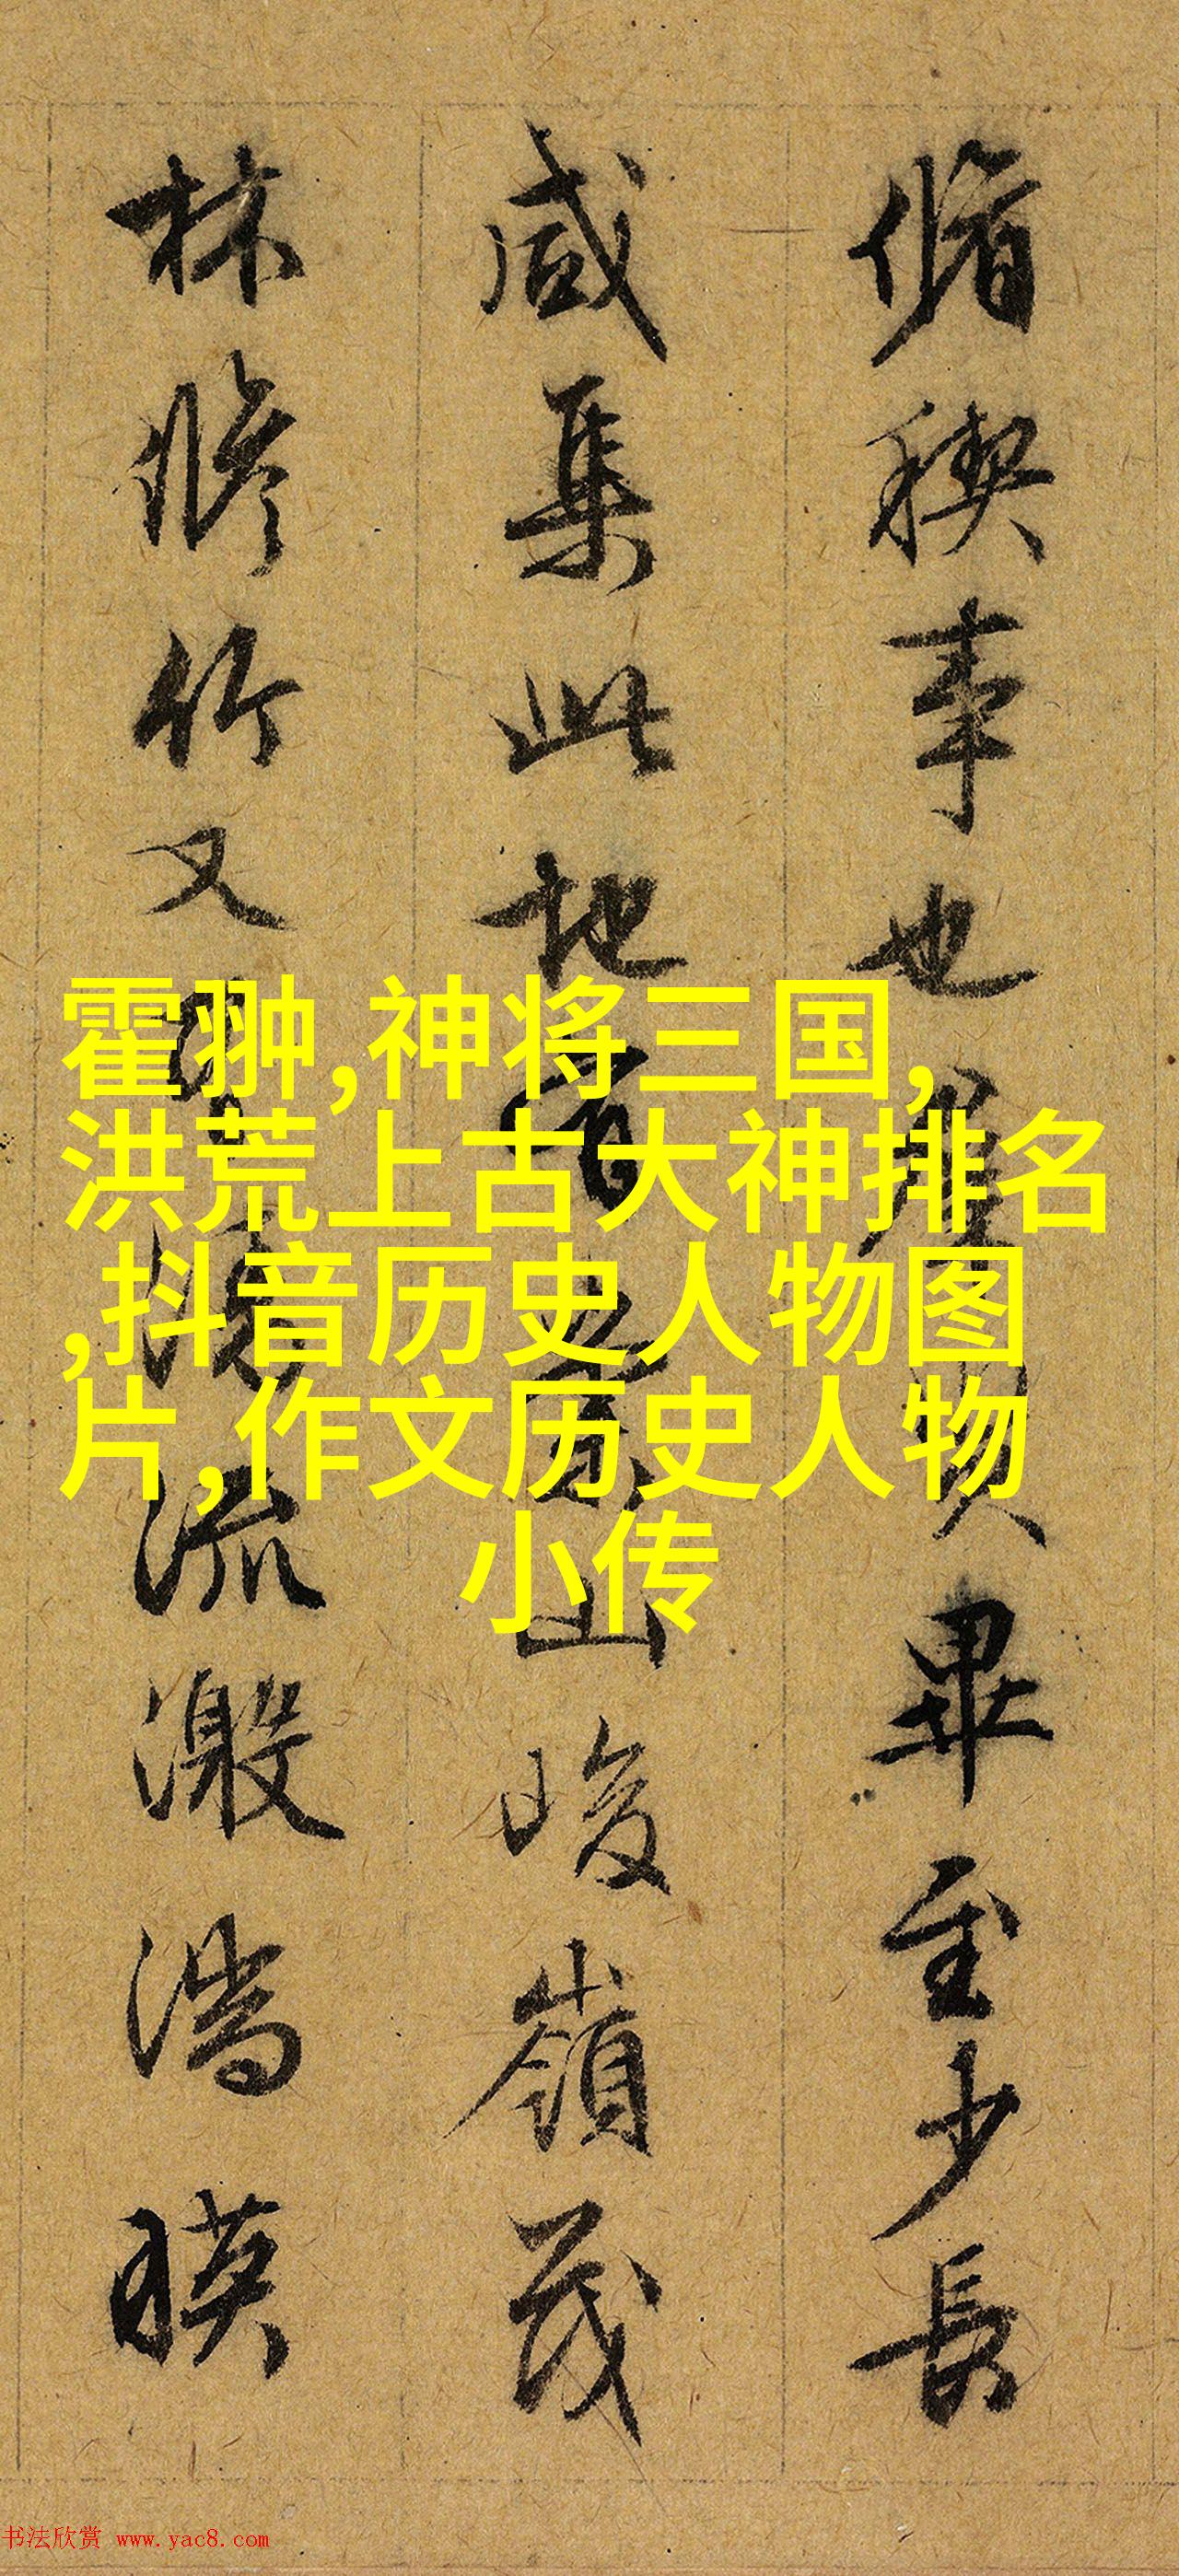 脩稧事也羣賢畢至少長
咸集此地有崇山峻嶺茂
林脩竹又有清流激湍暎
霍翀,神将三国,
洪荒上古大神排名
,抖音历史人物图
片,作文历史人物
小传
书法欣赏 www.yac8.com